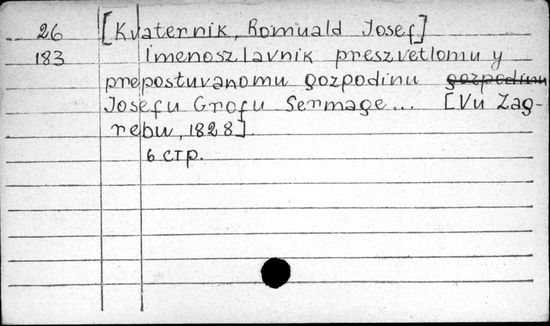 26 [Kvaternik, Romuald Josef]
183 Imenoszlavnik preszvetlomu y
prepostuvanomu gozpodinu gozpodinu
Josefu Grofu Sermage... [Vu Zag-
rebu, 1828].
6 стр.